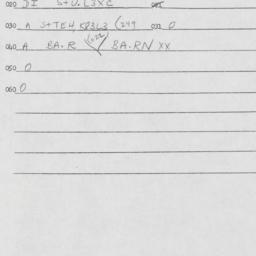 020 DI S+U.L3XC
030 A S+TEH, K03L3 (249 032 0
040 A BA.R (022) BA.RN XX
050 0
060 0